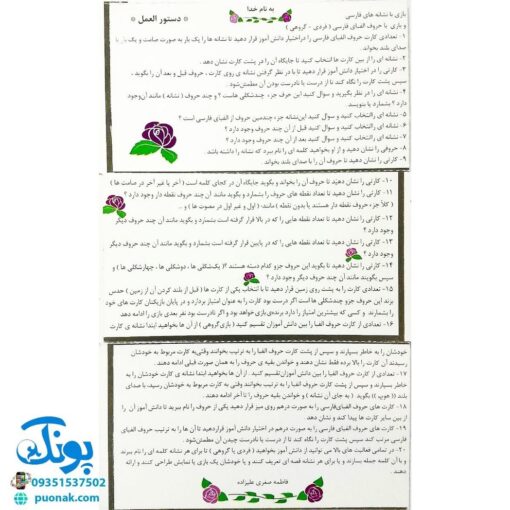 به نام خدا
* دستور العمل *
بازی با نشانه های فارسی
و بازی با حروف الفبای فارسی (فردی - گروهی )
۱- تعدادی کارت حروف الفبای فارسی را دراختیار دانش آموز قرار دهید تا نشانه ها را یک بار به صورت صامت و یک بار با
صدای بلند بخواند.
۲- نشانه ای را از بین کارت ها انتخاب کنید و جایگاه آن را در پشت کارت نشان دهد.
۳- کارتی را در اختیار دانش آموز قرار دهید تا با در نظر گرفتن نشانه ی روی کارت ، حروف قبل و بعد آن را بگوید ،
سپس پشت کارت را نگاه کند تا از درست یا نادرست بودن آن مطمئن شود.
۴- نشانه ای را در نظر بگیرید و سوال کنید این حرف جزء چندشکلی هاست ؟ و چند حروف ( نشانه ) مانند آن وجود
دارد ؟ بشمارد یا بنویسد.
۵- نشانه ای راانتخاب کنید و سوال کنید این نشانه جزء چندمین حروف از الفبای فارسی است ؟
۶- نشانه ای راانتخاب کنید و سوال کنید قبل از آن چند حروف وجود دارد ؟
۷- نشانه ای راانتخاب کنید و سوال کنید بعد از آن چند حروف وجود دارد ؟
۸- حروفی را نشان دهید و از او بخواهید کلمه ای را نام ببرد که نشانه را داشته باشد.
۹- کارتی را نشان دهید تا حروف آن را با صدای بلند بخواند.
۱۰- کارتی را نشان دهید تا حروف آن را بخواند و بگوید جایگاه آن در کجای کلمه است ( آخر یا غیر آخر در صامت ها )
۱۱- کارتی را نشان دهید تا تعداد نقطه های حروف را بشمارد و بگوید مانند آن چند حروف نقطه دار وجود دارد ؟
( کلا جزء حروف نقطه دار هستند یا بدون نقطه ) مانند: ( اول و غیر اول در مصوت ها ) و...
۱۲- کارتی را نشان دهید تا تعداد نقطه هایی را که در بالا قرار گرفته است بشمارد و بگوید مانند آن چند حروف دیگر
وجود دارد ؟
۱۳- کارتی را نشان دهید تا تعداد نقطه هایی را که در پایین قرار گرفته است بشمارد و بگوید مانند آن چند حروف دیگر
وجود دارد ؟
۱۴- کارتی را نشان دهید تا بگوید این حروف جزو کدام دسته هستند ؟( یک شکلی ها ، دوشکلی ها ، چهارشکلی ها ) و
سپس بگویند مانند آن چند حروف دیگر وجود دارد.
۱۵- تعدادی کارت را به پشت روی زمین قرار دهید تا با انتخاب یکی از کارت ها ( قبل از بلند کردن آن از زمین ) حدس
بزند این حروف جزو چندشکلی ها است اگر درست بود کارت را به عنوان امتیاز بردارد و در پایان بازیکنان کارت های خود
را بشمارند و کسی که بیشترین امتیاز را دارد برنده ی بازی خواهد بود و اگر نادرست بود نفر بعدی بازی را ادامه دهد
۱۶- تعدادی از کارت حروف الفبا را بین دانش آموزان تقسیم کنید ( بازی گروهی ) از آن ها بخواهید ابتدا نشانه ی کارت
خودشان را به خاطر بسپارند و سپس از پشت کارت حروف الفبا را به ترتیب بخوانند وقتی به کارت مربوط به خودشان
رسیدند آن کارت را بالا برده فقط نشان دهند و خواندن بقیه ی حروف را به همان صورت قبلی ادامه دهند.
۱۷- تعدادی از کارت حروف الفبا را بین دانش آموزان تقسیم کنید . از آن ها بخواهید ابتدا نشانه ی کارت خودشان را به
خاطر بسپارند و سپس از پشت کارت حروف الفبا را به ترتیب بخوانند وقتی به کارت مربوط به خودشان رسید، با صدای
بلند (( هوپ )) بگوید ( به جای آن نشانه ) و خواندن بقیه ی حروف را تا آخر ادامه دهند.
۱۸- کارت های حروف الفبای فارسی را به صورت درهم روی میز قرار دهید یکی از حروف را نام ببرید تا دانش آموز آن را
از بین سایر کارت ها پیدا کند و نشان دهد.
۱۹- کارت های حروف الفبای فارسی را به صورت درهم در اختیار دانش آموز قرار دهید تا آن ها را به ترتیب حروف الفبای
فارسی مرتب کند سپس پشت کارت را نگاه کند تا از درست یا نادرست چیدن آن مطمئن شود.
۲۰- در تمامی فعالیت های بالا می توانید از دانش آموز بخواهید ( فردی یا گروهی ) تا برای هر نشانه کلمه ای را نام ببرند
و با آن کلمه جمله بسازند و یا برای هر نشانه قصه ای تعریف کنند و یا خودشان یک بازی یا نمایش طراحی کنند و ارائه
دهند.
فاطمه صفری علیزاده
پونک
09351537502
puonak.com